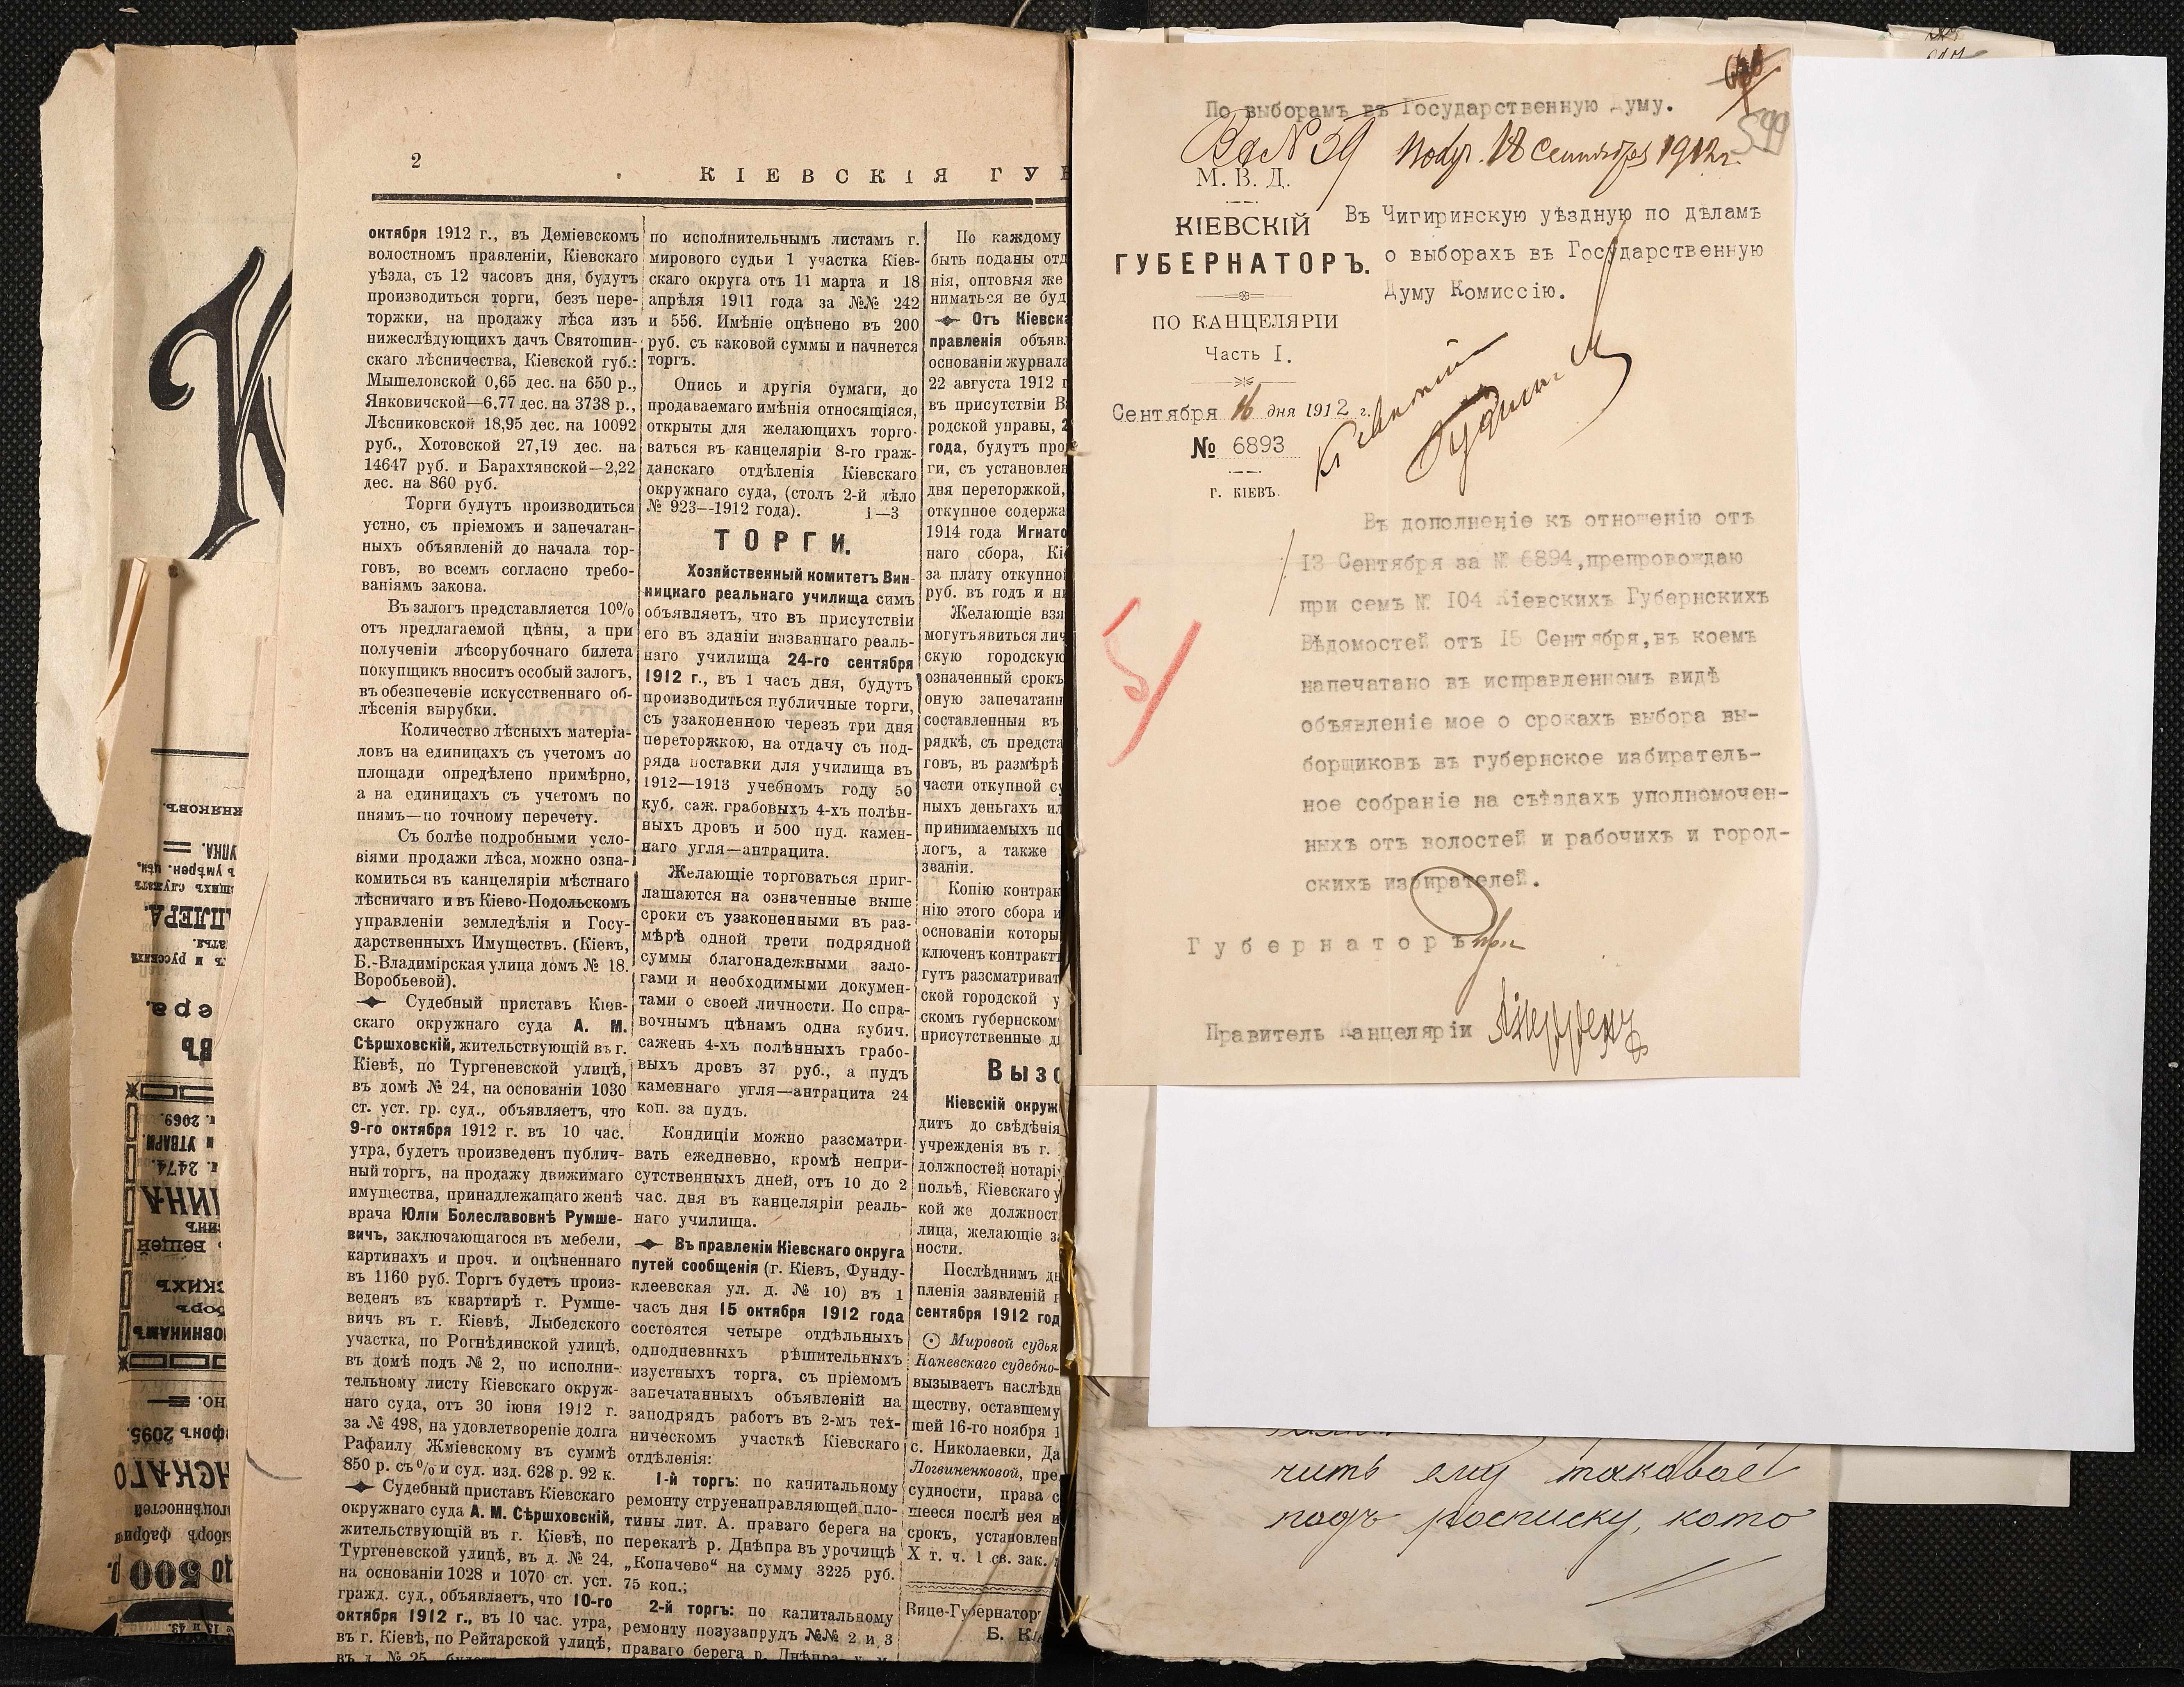 2
КІЕВСКІЯ ГУ
октября 1912 г., въ Деміевскомъ
волостномъ правленіи, Кіевскаго
уѣзда, съ 12 часовъ дня, будутъ
производиться торги, безъ пере-
торжки, на продажу лѣса изъ
нижеслѣдующихъ дачъ Святошин-
скаго лѣсничества, Кіевской губ.:
Мышеловской 0,65 дес. на 650 р.,
Янковичской—6,77 дес. на 3738 р.,
Лѣсниковской 18,95 дес. на 10092
руб., Хотовской 27,19 дес. на
14647 руб. и Барахтянской—2,22
дес. на 860 руб.
Торги будутъ производиться
устно, съ пріемомъ и запечатан-
ныхъ объявленій до начала тор-
говъ, во всемъ согласно требо-
ваніямъ закона.
Въ залогъ представляется 10%
отъ предлагаемой цѣны, а при
полученіи лѣсорубочнаго билета
покупщикъ вноситъ особый залогъ,
въ обезпеченіе искусственнаго об-
лѣсенія вырубки.
Количество лѣсныхъ матеріа-
ловъ на единицахъ съ учетомъ по
площади опредѣлено примѣрно,
а на единицахъ съ учетомъ по
пнямъ—по точному перечету.
Съ болѣе подробными усло-
віями продажи лѣса, можно озна-
комиться въ канцеляріи мѣстнаго
лѣсничаго и въ Кіево-Подольскомъ
управленіи земледѣлія и Госу-
дарственныхъ Имуществъ. (Кіевъ,
Б.-Владимірская улица домъ № 18.
Воробьевой).
Судебный приставъ Кіев-
скаго окружнаго суда А. М.
Сѣршховскій, жительствующій въ г.
Кіевѣ, по Тургеневской улицѣ,
въ домѣ № 24, на основаніи 1030
ст. уст. гр. суд., объявляетъ, что
9-го октября 1912 г. въ 10 час.
утра, будетъ произведенъ публич-
ный торгъ, на продажу движимаго
имущества, принадлежащаго женѣ
врача Юліи Болеславовнѣ Румше-
вичъ, заключающагося въ мебели,
картинахъ и проч. и оцѣненнаго
въ 1160 руб. Торгъ будетъ произ-
веденъ въ квартирѣ г. Румше-
вичъ въ г. Кіевѣ, Лыбедского
участка, по Рогнѣдинской улицѣ,
въ домѣ подъ № 2, по исполни-
тельному листу Кіевскаго окруж-
наго суда, отъ 30 іюня 1912 г.
за № 498, на удовлетвореніе долга
Рафаилу Жміевскому въ суммѣ
850 р. съ % и суд. изд. 628 р. 92 к.
Судебный приставъ Кіевскаго
окружнаго суда А. М. Сѣршховскій,
жительствующій въ г. Кіевѣ, по
Тургеневской улицѣ, въ д. № 24,
на основаніи 1028 и 1070 ст. уст.
гражд. суд., объявляетъ, что 10-го
октября 1912 г., въ 10 час. утра,
въ г. Кіевѣ, по Рейтарской улицѣ,
въ д. № 25
по исполнительнымъ листамъ г.
мирового судьи 1 участка Кіев-
скаго округа отъ 11 марта и 18
апрѣля 1911 года за №№ 242
и 556. Имѣніе оцѣнено въ 200
руб. съ каковой суммы и начнется
торгъ.
Опись и другія бумаги, до
продаваемаго имѣнія относящіяся,
открыты для желающихъ торго-
ваться въ канцеляріи 8-го граж-
данскаго отдѣленія Кіевскаго
окружнаго суда, (столъ 2-й дѣло
№ 923—1912 года). 1—3
ТОРГИ.
Хозяйственный комитетъ Вин-
ницкаго реальнаго училища симъ
объявляетъ, что въ присутствіи
его въ зданіи названнаго реаль-
наго училища 24-го сентября
1912 г., въ 1 часъ дня, будутъ
производиться публичные торги,
съ узаконенною черезъ три дня
переторжкою, на отдачу съ под-
ряда поставки для училища въ
1912—1913 учебномъ году 50
куб. саж. грабовыхъ 4-хъ полѣн-
ныхъ дровъ и 500 пуд. камен-
наго угля—антрацита.
Желающіе торговаться приг-
лашаются на означенные выше
сроки съ узаконенными въ раз-
мѣрѣ одной трети подрядной
суммы благонадежными зало-
гами и необходимыми докумен-
тами о своей личности. По спра-
вочнымъ цѣнамъ одна кубич.
сажень 4-хъ полѣнныхъ грабо-
выхъ дровъ 37 руб., а пудъ
каменнаго угля—антрацита 24
коп. за пудъ.
Кондиціи можно разсматри-
вать ежедневно, кромѣ непри-
сутственныхъ дней, отъ 10 до 2
час. дня въ канцеляріи реаль-
наго училища.
Въ правленіи Кіевскаго округа
путей сообщенія (г. Кіевъ, Фунду-
клеевская ул. д. № 10) въ 1
часъ дня 15 октября 1912 года
состоятся четыре отдѣльныхъ
однодневныхъ рѣшительныхъ
изустныхъ торга, съ пріемомъ
запечатанныхъ объявленій на
заподрядъ работъ въ 2-мъ тех-
ническомъ участкѣ Кіевскаго
отдѣленія:
1-й торгъ: по капитальному
ремонту струенаправляющей пло-
тины лит. А. праваго берега на
перекатѣ р. Днѣпра въ урочищѣ
„Копачево" на сумму 3225 руб.
75 коп.;
2-й торгъ: по капитальному
ремонту позузапрудъ №№ 2 и 3
праваго берега р. Днѣпра
По каждому
быть поданы отд
нія, оптовыя же
ниматься не буд
Отъ Кіевска
правленія объяв
основаніи журнала
22 августа 1912 г
въ присутствіи В
родской управы, 2
года, будутъ про
ги, съ установлен
дня переторжкой,
откупное содержа
1914 года Игнато
наго сбора, Кіе
за плату откупной
руб. въ годъ и на
Желающіе взя
могутъ явиться лич
скую городскую
означенный срокъ
оную запечатанн
составленныя въ
рядкѣ, съ предста
говъ, въ размѣрѣ
части откупной су
ныхъ деньгахъ ил
принимаемыхъ по
логъ, а также
званіи.
Копію контрак
нію этого сбора и
основаніи которы
ключенъ контрактъ
гутъ разсматриват
ской городской у
скомъ губернском
присутственные д
Вызо
Кіевскій окруж
дитъ до свѣдѣнія
учрежденія въ г.
должностей нотарі
польѣ, Кіевскаго у
кой же должност
лица, желающіе за
ности.
Послѣднимъ дн
пленія заявленій н
сентября 1912 год
Мировой судья
Каневскаго судебно-
вызываетъ наслѣдн
ществу, оставшему
шей 16-го ноября 1
с. Николаевки, Да
Логвиненковой, пре
судности, права с
щееся послѣ нея и
срокъ, установлен
X т. ч. 1 св. зак.
Вице-Губернатор
Б. К
По выборамъ въ Государственную Думу.
544
Вх № 59 Получ. 18 Сентября 1912 г.
М. В. Д.
КІЕВСКІЙ
ГУБЕРНАТОРЪ.
ПО КАНЦЕЛЯРІИ
Часть I.
Сентября 16 дня 1912 г.
№ 6893
г. КІЕВЪ.
Въ Чигиринскую уѣздную по дѣламъ
о выборахъ въ Государственную
Думу Комиссію.
Въ дополненіе къ отношенію отъ
13 Сентября за № 6894, препровождаю
при семъ № 104 Кіевскихъ Губернскихъ
Вѣдомостей отъ 15 Сентября, въ коемъ
напечатано въ исправленномъ видѣ
объявленіе мое о срокахъ выбора вы-
борщиковъ въ губернское избиратель-
ное собраніе на съѣздахъ уполномочен-
ныхъ отъ волостей и рабочихъ и город-
скихъ избирателей.
Губернаторъ
Правитель Канцеляріи
чить ему таковое
подъ росписку, кото